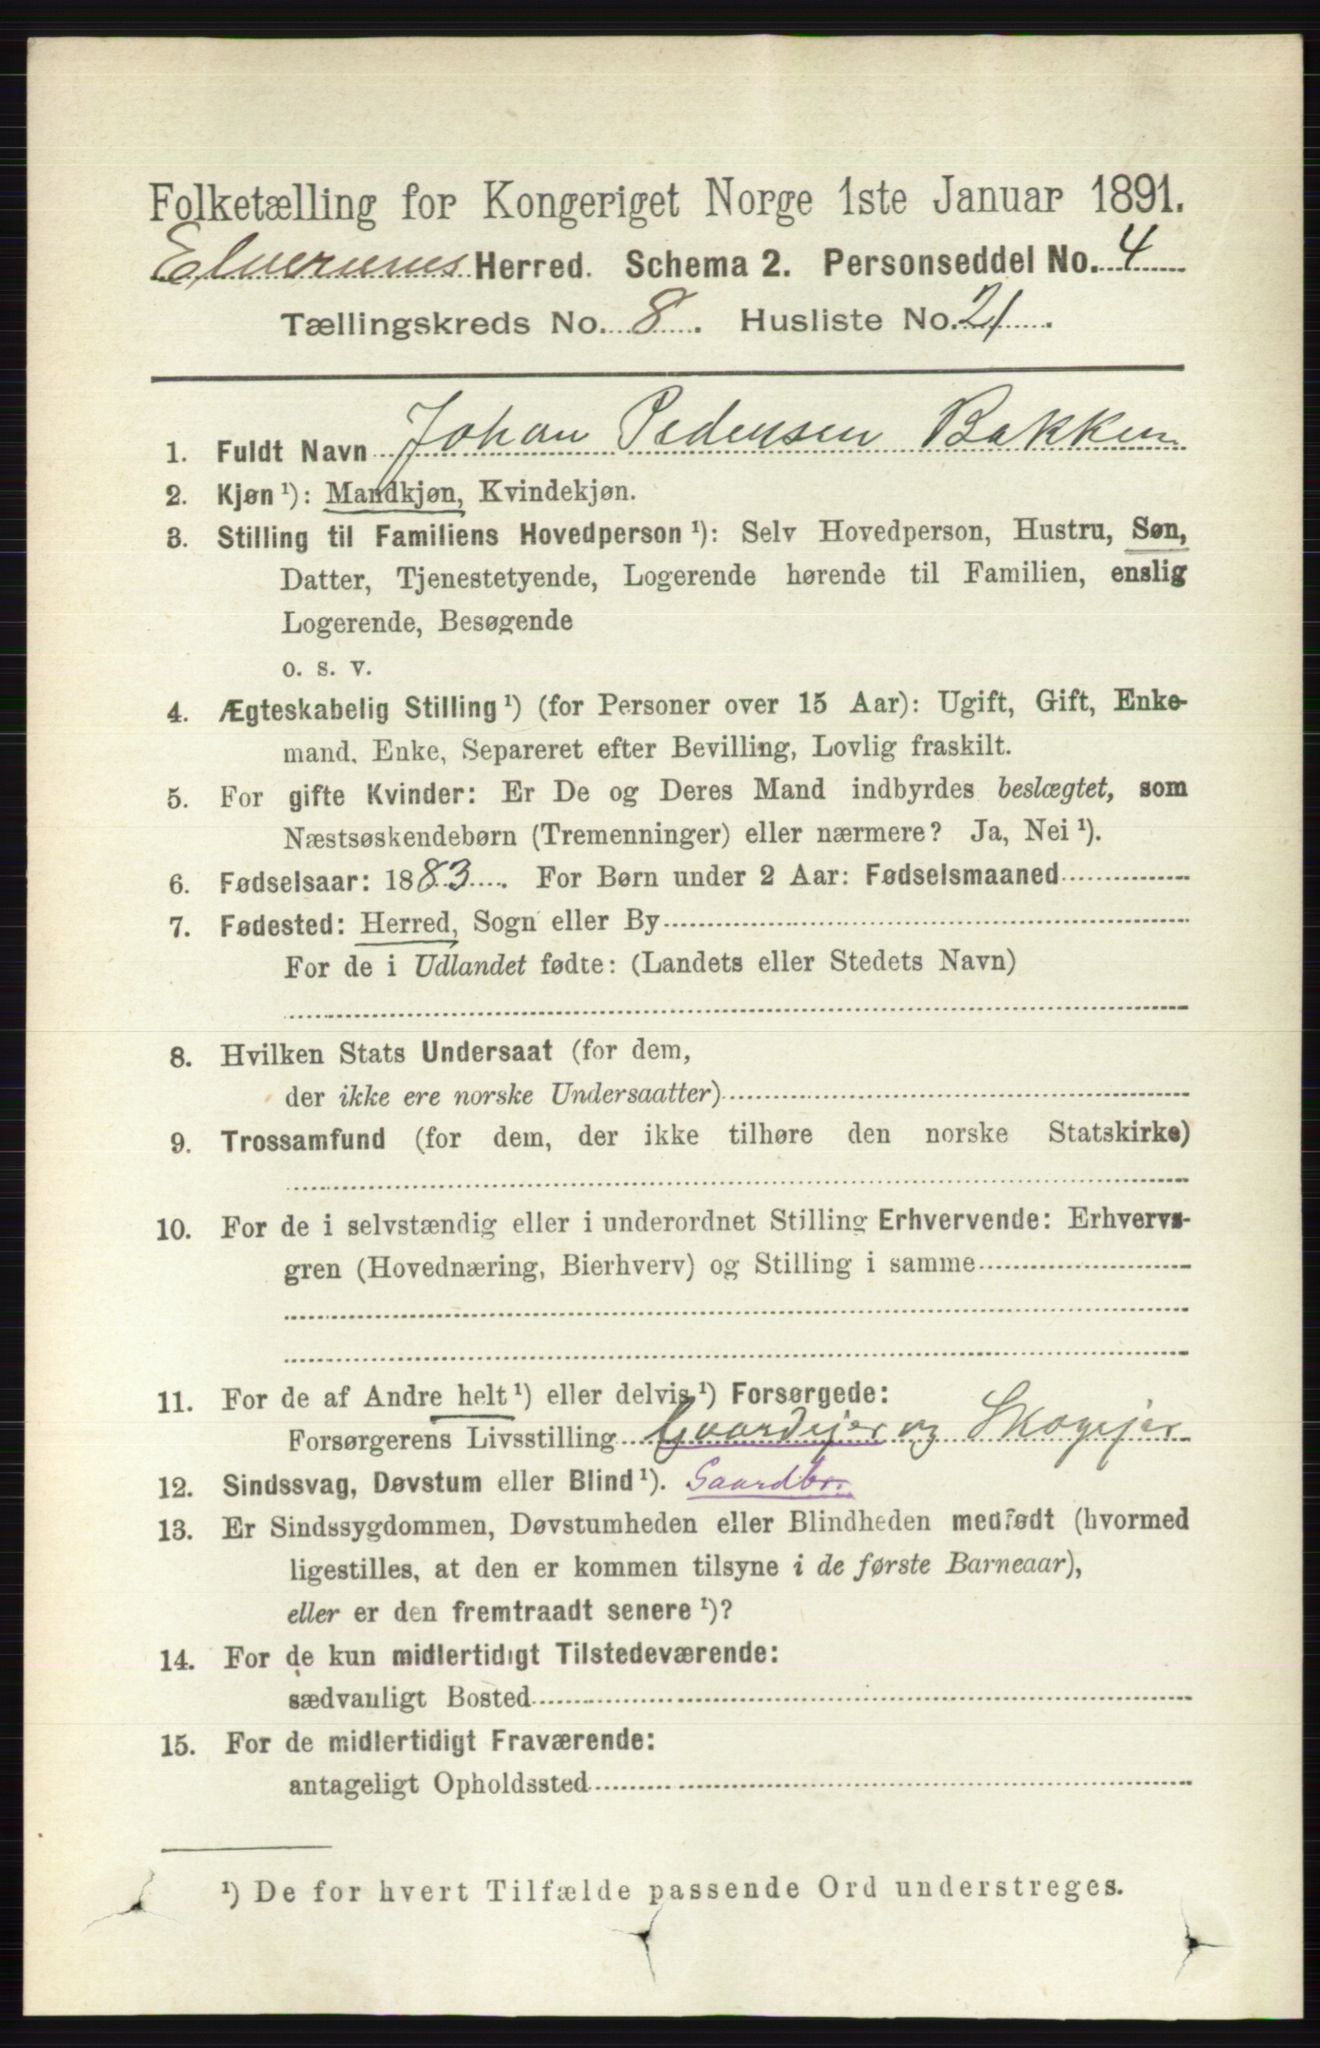 Folketælling for Kongeriget Norge 1ste Januar 1891.
Elverums Herred. Schema 2. Personseddel No. 4
Tællingskreds No. 8. Husliste No. 21.
1. Fuldt Navn Johan Pedersen Bakken
2. Kjøn ¹): Mandkjøn, Kvindekjøn.
3. Stilling til Familiens Hovedperson ¹): Selv Hovedperson, Hustru, Søn,
Datter, Tjenestetyende, Logerende hørende til Familien, enslig
Logerende, Besøgende
o. s. v.
4. Ægteskabelig Stilling ¹) (for Personer over 15 Aar): Ugift, Gift, Enke-
mand, Enke, Separeret efter Bevilling, Lovlig fraskilt.
5. For gifte Kvinder: Er De og Deres Mand indbyrdes beslægtet, som
Næstsøskendebørn (Tremenninger) eller nærmere? Ja, Nei ¹).
6. Fødselsaar: 1883. For Børn under 2 Aar: Fødselsmaaned
7. Fødested: Herred, Sogn eller By
For de i Udlandet fødte: (Landets eller Stedets Navn)
8. Hvilken Stats Undersaat (for dem,
der ikke ere norske Undersaatter)
9. Trossamfund (for dem, der ikke tilhøre den norske Statskirke)
10. For de i selvstændig eller i underordnet Stilling Erhvervende: Erhvervs-
gren (Hovednæring, Bierhverv) og Stilling i samme
11. For de af Andre helt ¹) eller delvis ¹) Forsørgede:
Forsørgerens Livsstilling Gaardejer og Skogejer
12. Sindssvag, Døvstum eller Blind ¹). Gaardbr.
13. Er Sindssygdommen, Døvstumheden eller Blindheden medfødt (hvormed
ligestilles, at den er kommen tilsyne i de første Barneaar),
eller er den fremtraadt senere ¹)?
14. For de kun midlertidigt Tilstedeværende:
sædvanligt Bosted
15. For de midlertidigt Fraværende:
antageligt Opholdssted
¹) De for hvert Tilfælde passende Ord understreges.